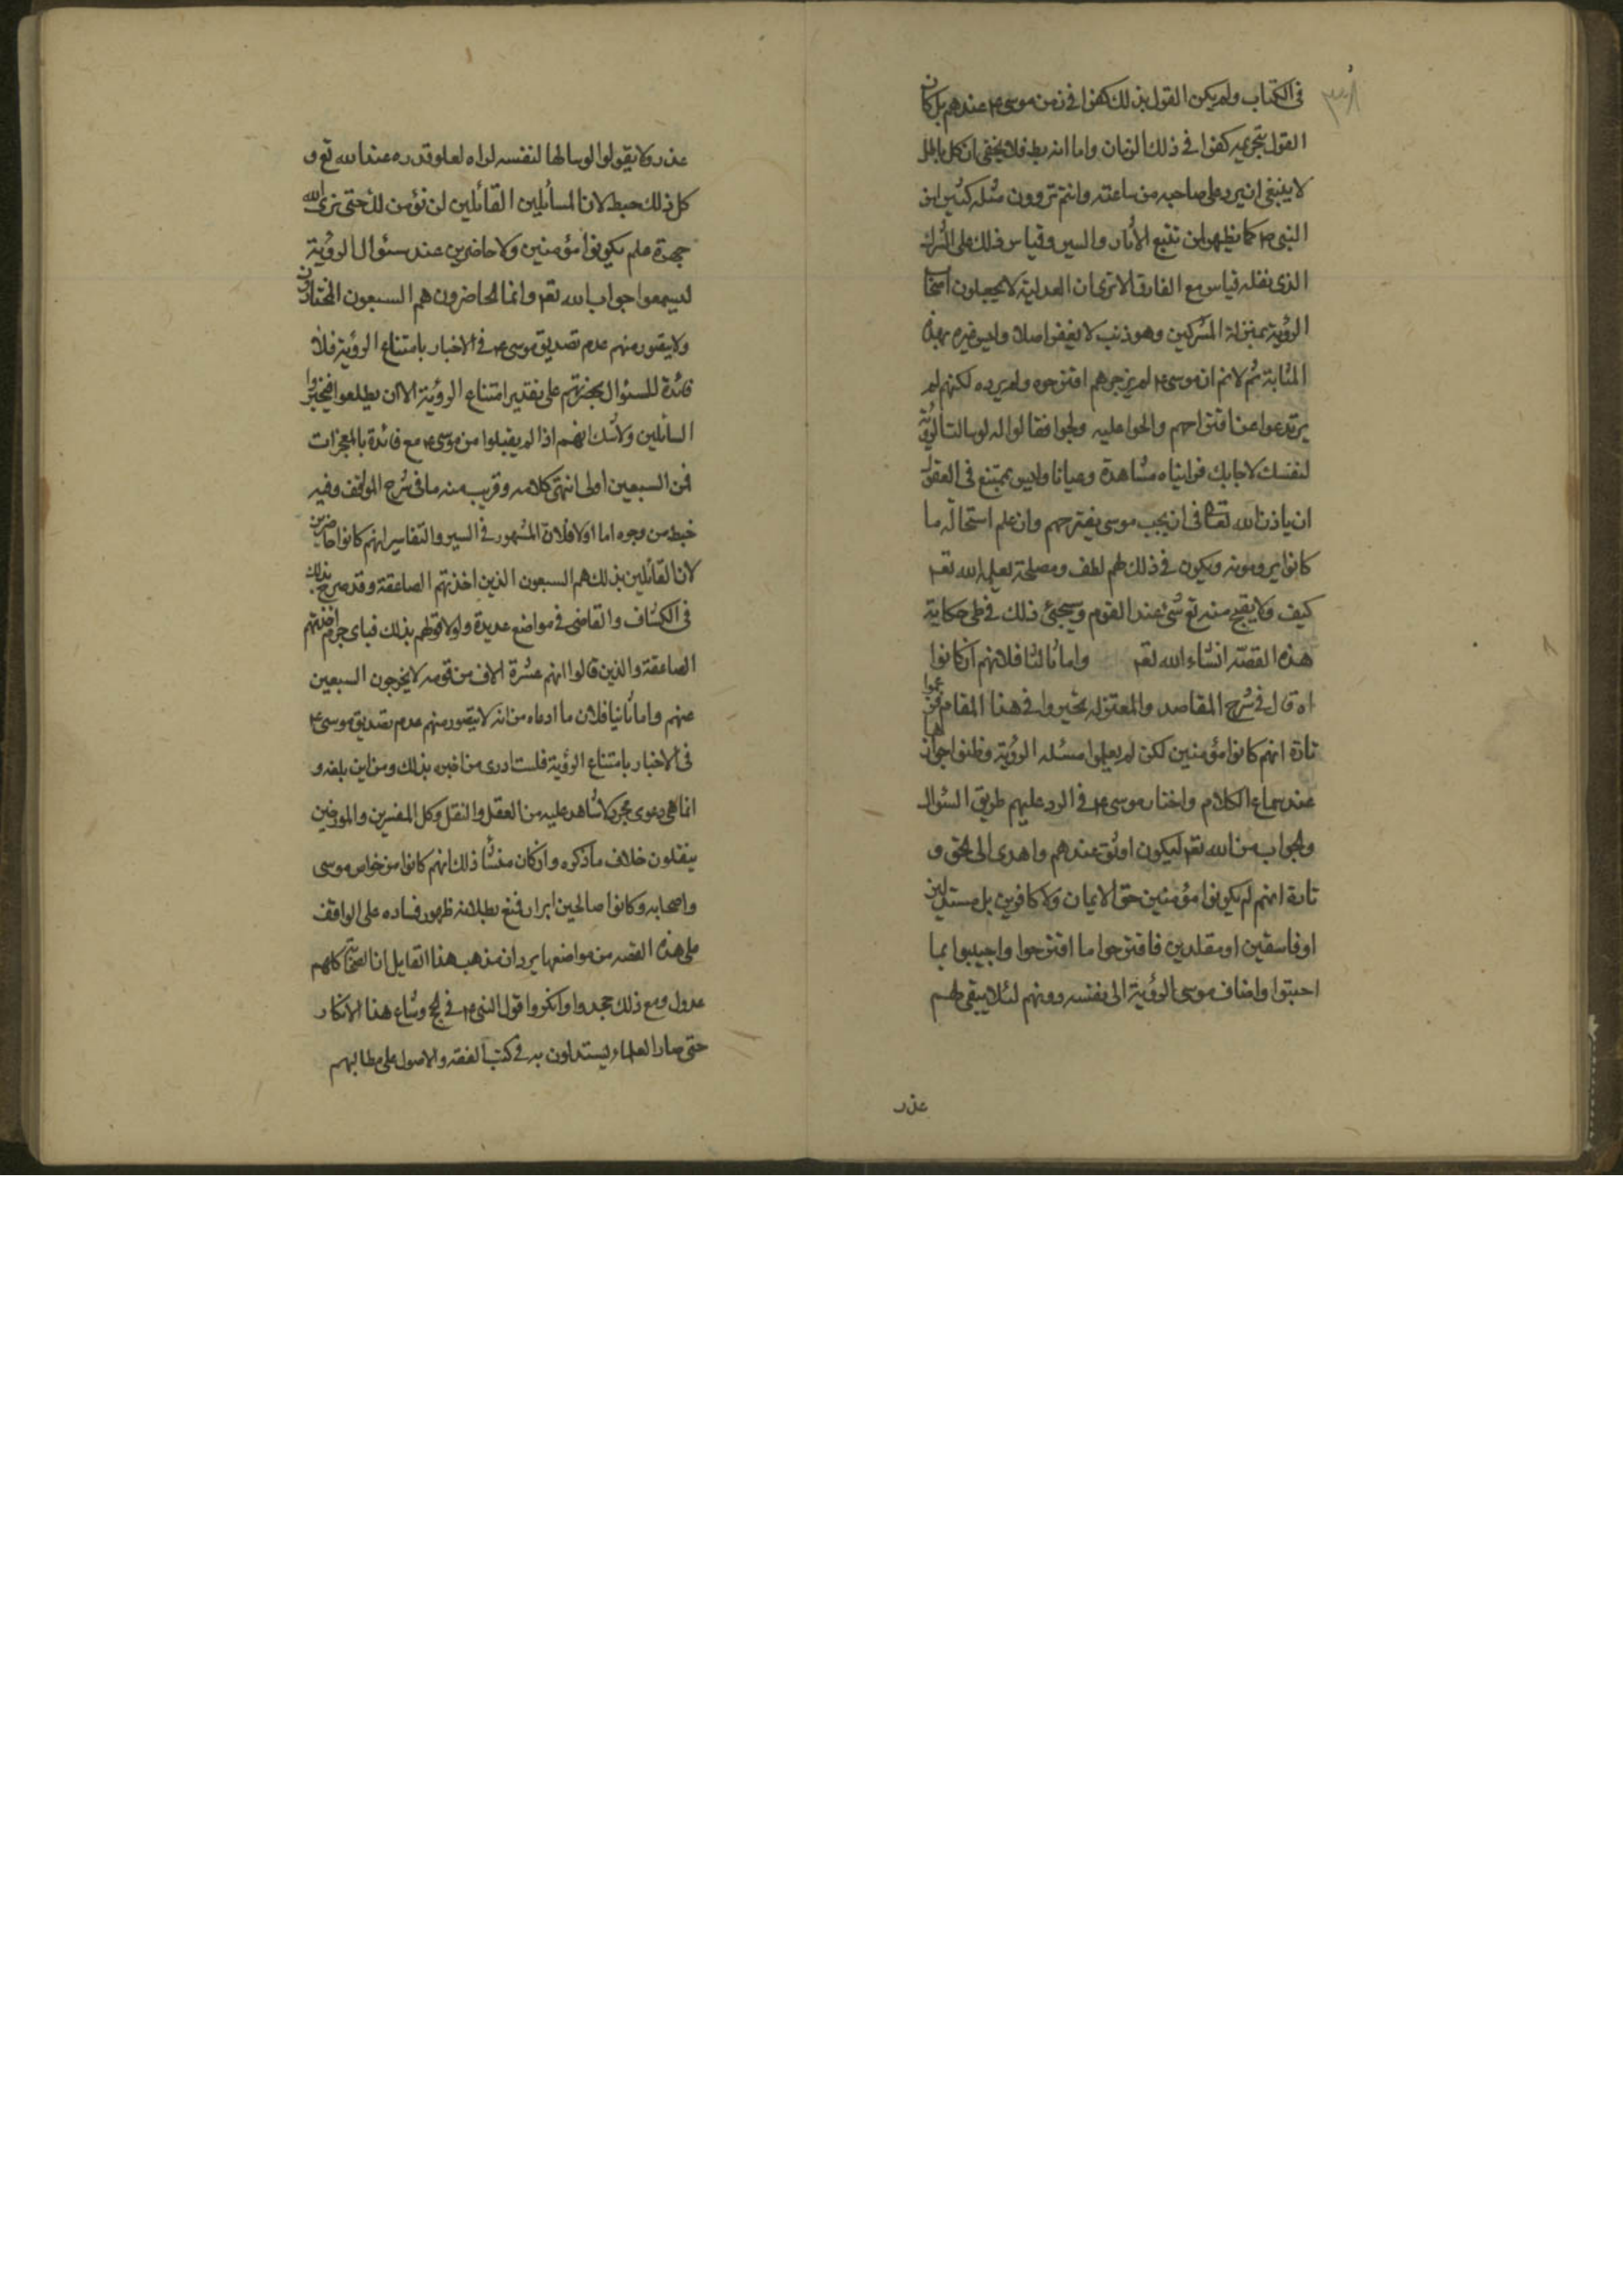 في الكتاب ولم يكن القول بذلك كفرا في زمن موسى ع عندهم بل كان
القول بتجويزه كفرا في ذلك الزمان واما انه بط فلا يخفى ان كل باطل
لا ينبغي ان يرد على صاحبه من ساعته وانتم تروون مثله كثيرا من
النبي ص كما يظهر لمن تتبع الآثار والسير وقياس ذلك على الشرك
الذي نقله قياس مع الفارق الا ترى ان العدلية لا يجعلون اصحاب
الرؤية بمنزلة المشركين وهو ذنب لا يغفر اصلا وليس غيره بهذه
المثابة ثم لانم ان موسى ع لم يزجرهم اقترحوه ولم يرده لكنهم لم
يرتدعوا عن اقتراحهم والحوا عليه ولجوا فقالوا له لو سالت الرؤية
لنفسك لاجابك فرايناه مشاهدة وعيانا وليس بممتنع في العقول
ان ياذن الله تعالى في ان يجيب موسى بمقترحهم وان علم استحالة ما
كانوا يرومونه ويكون في ذلك لهم لطف ومصلحة لعلمها الله تعم
كيف ولا يقبح منه تع شئ عند القوم وسيجئ ذلك في طي حكاية
هذه القصة انشاء الله تعم واما ثالثا فلانهم ان كانوا
اه قال في شرح المقاصد والمعتزلة تحيروا في هذا المقام فزعموا
تارة انهم كانوا مؤمنين لكن لم يعلموا مسئله الرؤية وظنوا جوازها
عند سماع الكلام واختار موسى ع في الرد عليهم طريق السئوال
والجواب من الله تعم ليكون اوثق عندهم واهدى الى الحق و
تارة انهم لم يكونوا مؤمنين حق الايمان ولا كافرين بل مستدلين
او فاسقين او مقلدين فاقترحوا ما اقترحوا واجيبوا بما
اجيبوا واضاف موسى الرؤية الى نفسه دونهم لئلا يبقى لهم
عذر
عذر ولا يقولوا لو سالها لنفسه لراه لعلو قدره عند الله تع و
كل ذلك خبط لان السائلين القائلين لن نؤمن لك حتى نرى الله
جهرة لم يكونوا مؤمنين ولا حاضرين عند سئوال الرؤية
ليسمعوا جواب الله تعم وانما الحاضرون هم السبعون المختارون
ولا يتصور منهم عدم تصديق موسى ع في الاخبار بامتناع الرؤية فلا
فائدة للسئوال بحضرتهم على تقدير امتناع الرؤية الا ان يطلعوا فيخبروا
السائلين ولا شك انهم اذا لم يقبلوا من موسى ع مع فائدة بالمعجزات
فمن السبعين اولى انتهى كلامه وقريب منه ما في شرح المواقف وفيه
خبط من وجوه اما اولا فلان المشهور في السير والتفاسير انهم كانوا حاضرين
لان القائلين بذلك هم السبعون الذين اخذتهم الصاعقة وقد صرح بذلك
في الكشاف والقاضي في مواضع عديدة ولولا قولهم بذلك فباي جرم اخذتهم
الصاعقة والذين قالوا انهم عشرة الاف من قومه لا يخرجون السبعين
عنهم واما ثانيا فلان ما ادعاه من انه لا يتصور منهم عدم تصديق موسى ع
في الاخبار بامتناع الرؤية فلست ادرى من اخبره بذلك ومن اين بلغه و
انما هي دعوى مجردة لا شاهد عليه من العقل والنقل وكل المفسرين والمورخين
ينقلون خلاف ما ذكره وان كان منشأ ذلك انهم كانوا من خواص موسى
واصحابه وكانوا صالحين ابرار فمنع بطلانه ظهور فساده على الواقف
على هذه القصه من مواضعها يرد ان مذهب هذا القايل ان الصحابة كلهم
عدول ومع ذلك جحدوا وانكروا قول النبي ص في الحج وشاع هذا الانكار
حتى صار العلماء يستدلون به في كتب الفقه والاصول على مطالبهم